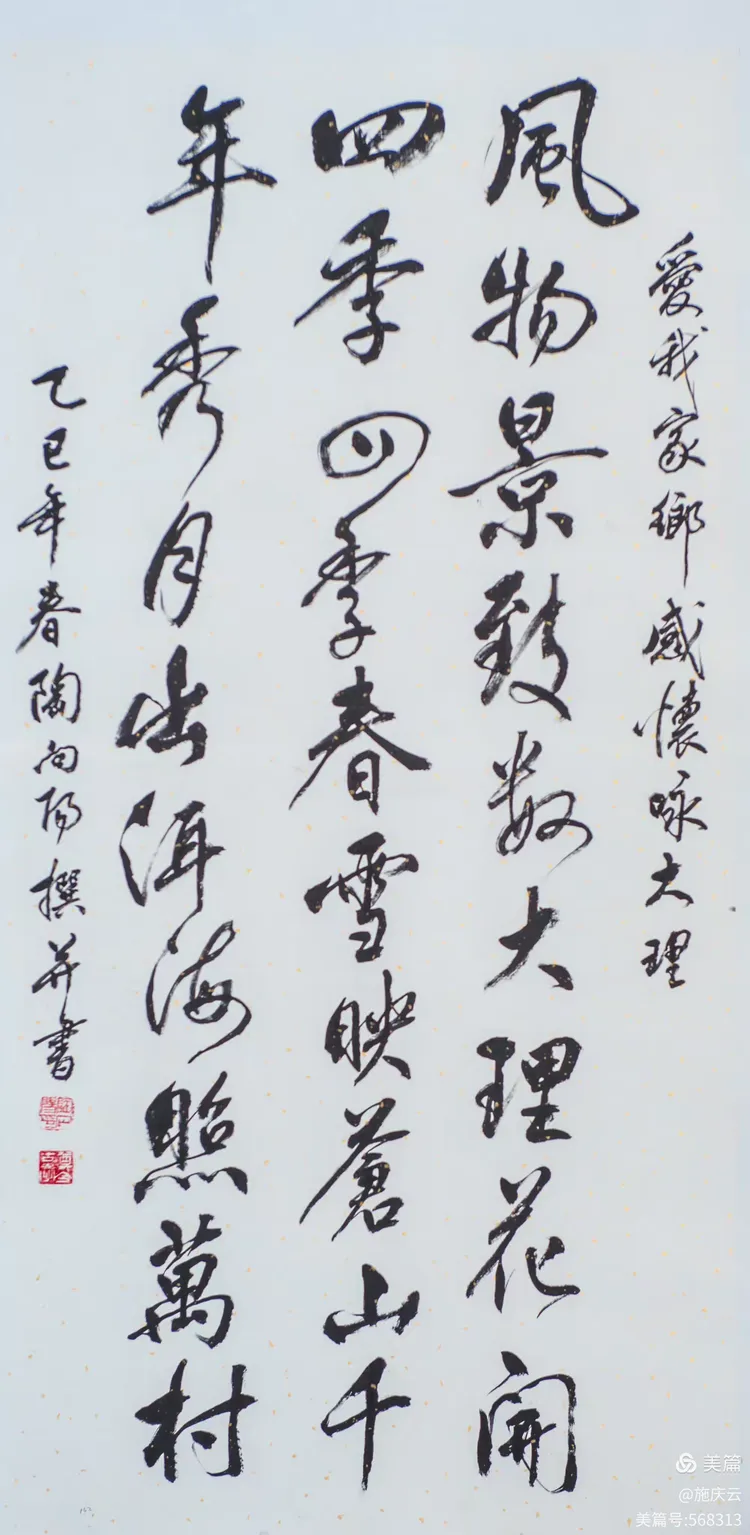 愛我家鄉感懷咏大理
風物景致數大理花開
四季四季春雪映蒼山千
年秀月出洱海照萬村
乙巳年春陶向陽撰并書
美篇
@施庆云
美篇号:568313